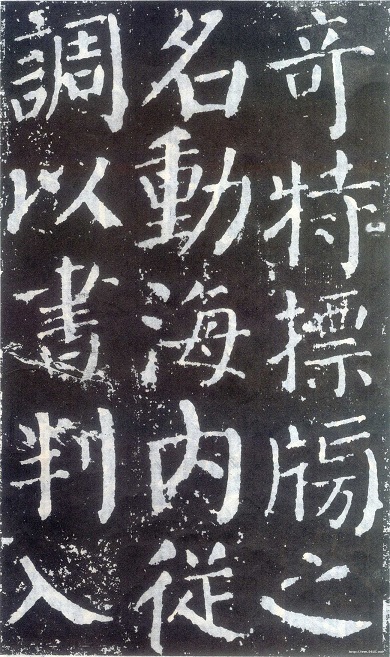 奇特摽牓之
名動海内從
調以書判入